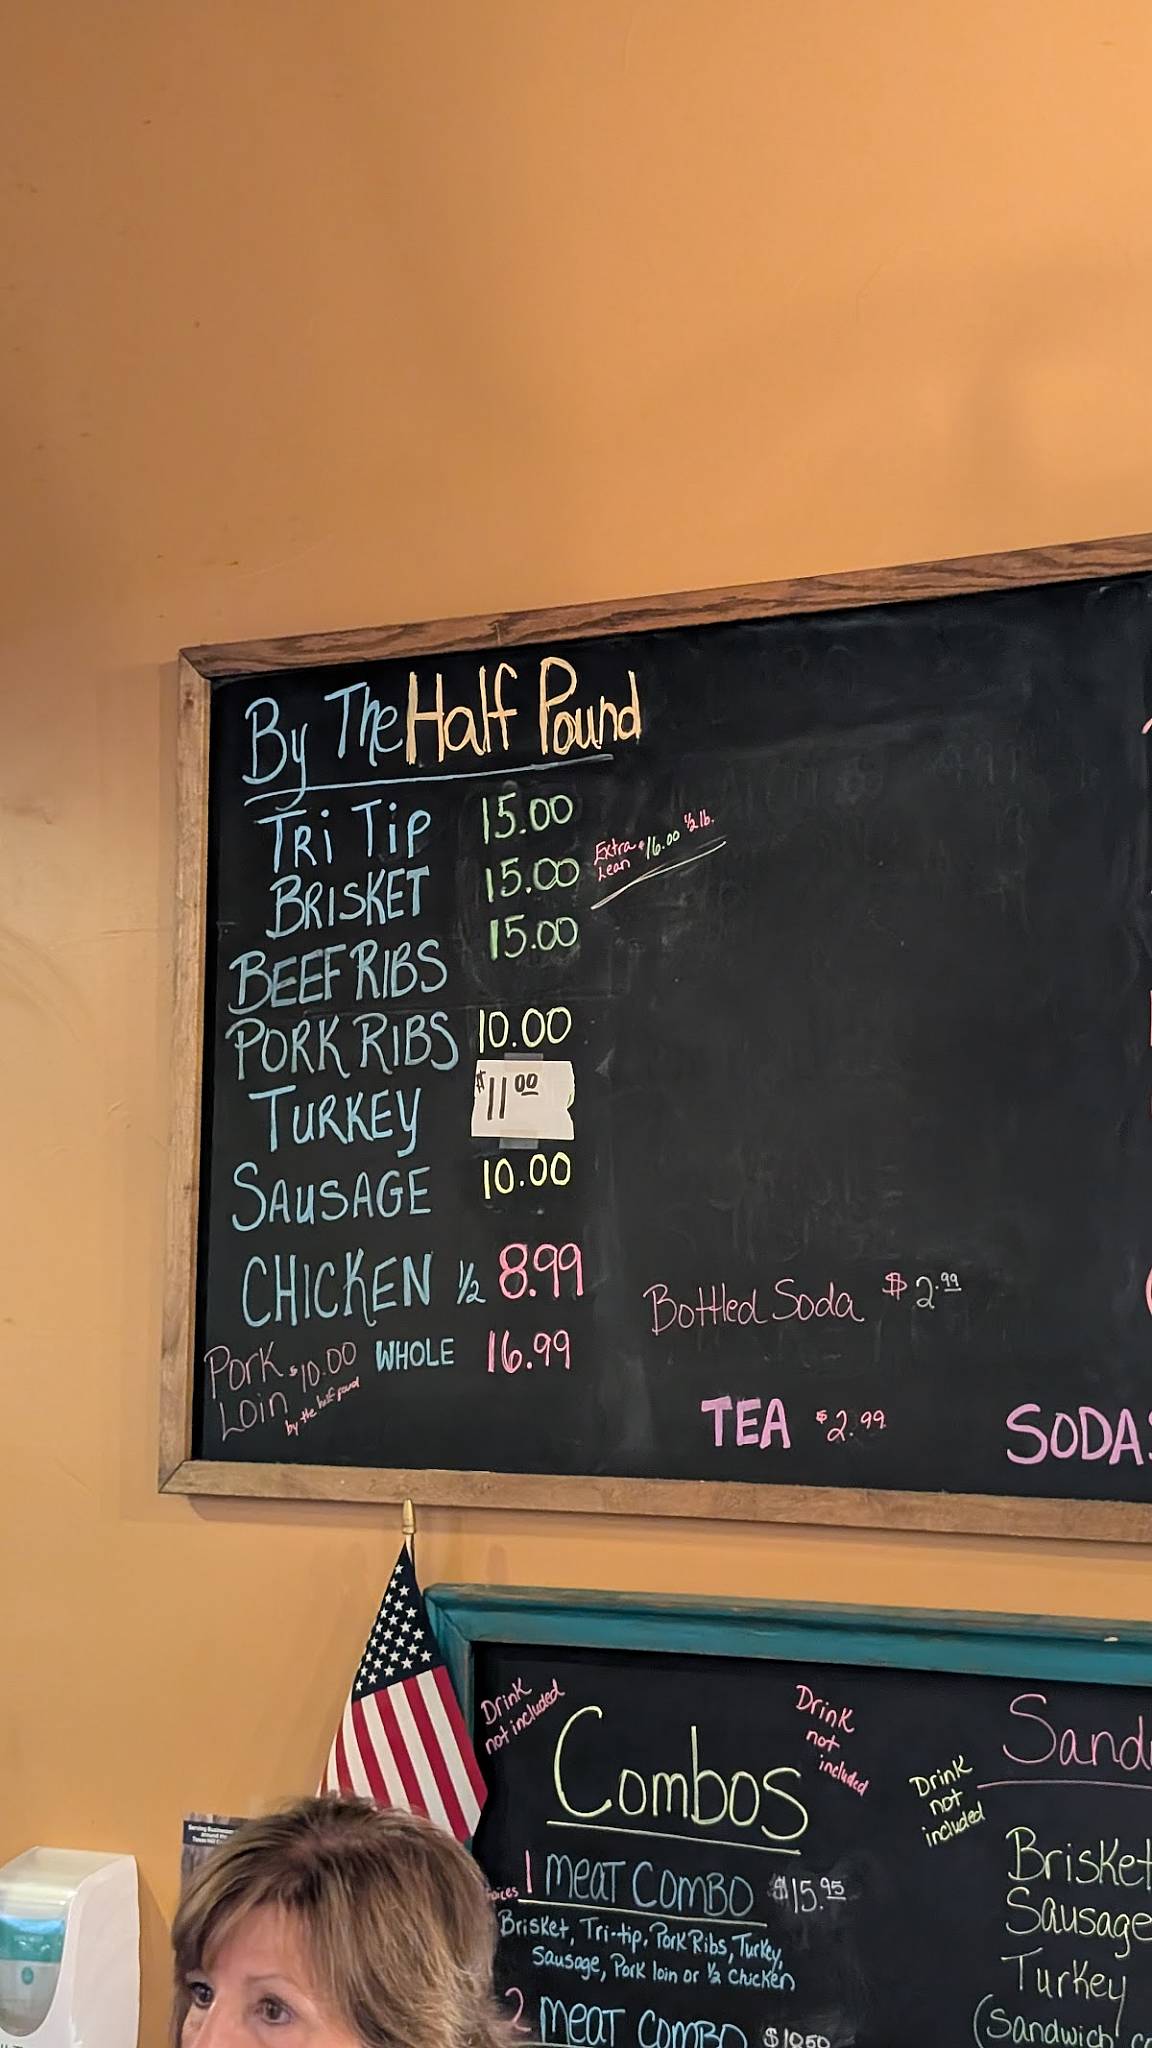 By The Half Pound
TRI TIP 15.00
Extra Lean $16.00 ½ lb.
BRISKET 15.00
BEEF RIBS 15.00
PORK RIBS 10.00
TURKEY $11.00
SAUSAGE 10.00
CHICKEN ½ 8.99
WHOLE 16.99
Pork Loin $10.00
by the half pound
Bottled Soda $2.99
TEA $2.99
SODAS
Drink
not included
Combos
Drink
not
included
1 MEAT COMBO $15.95
Brisket, Tri-tip, Pork Ribs, Turkey,
Sausage, Pork loin or ½ Chicken
2 MEAT COMBO
Drink
not
included
Sand
Brisket
Sausage
Turkey
(Sandwich